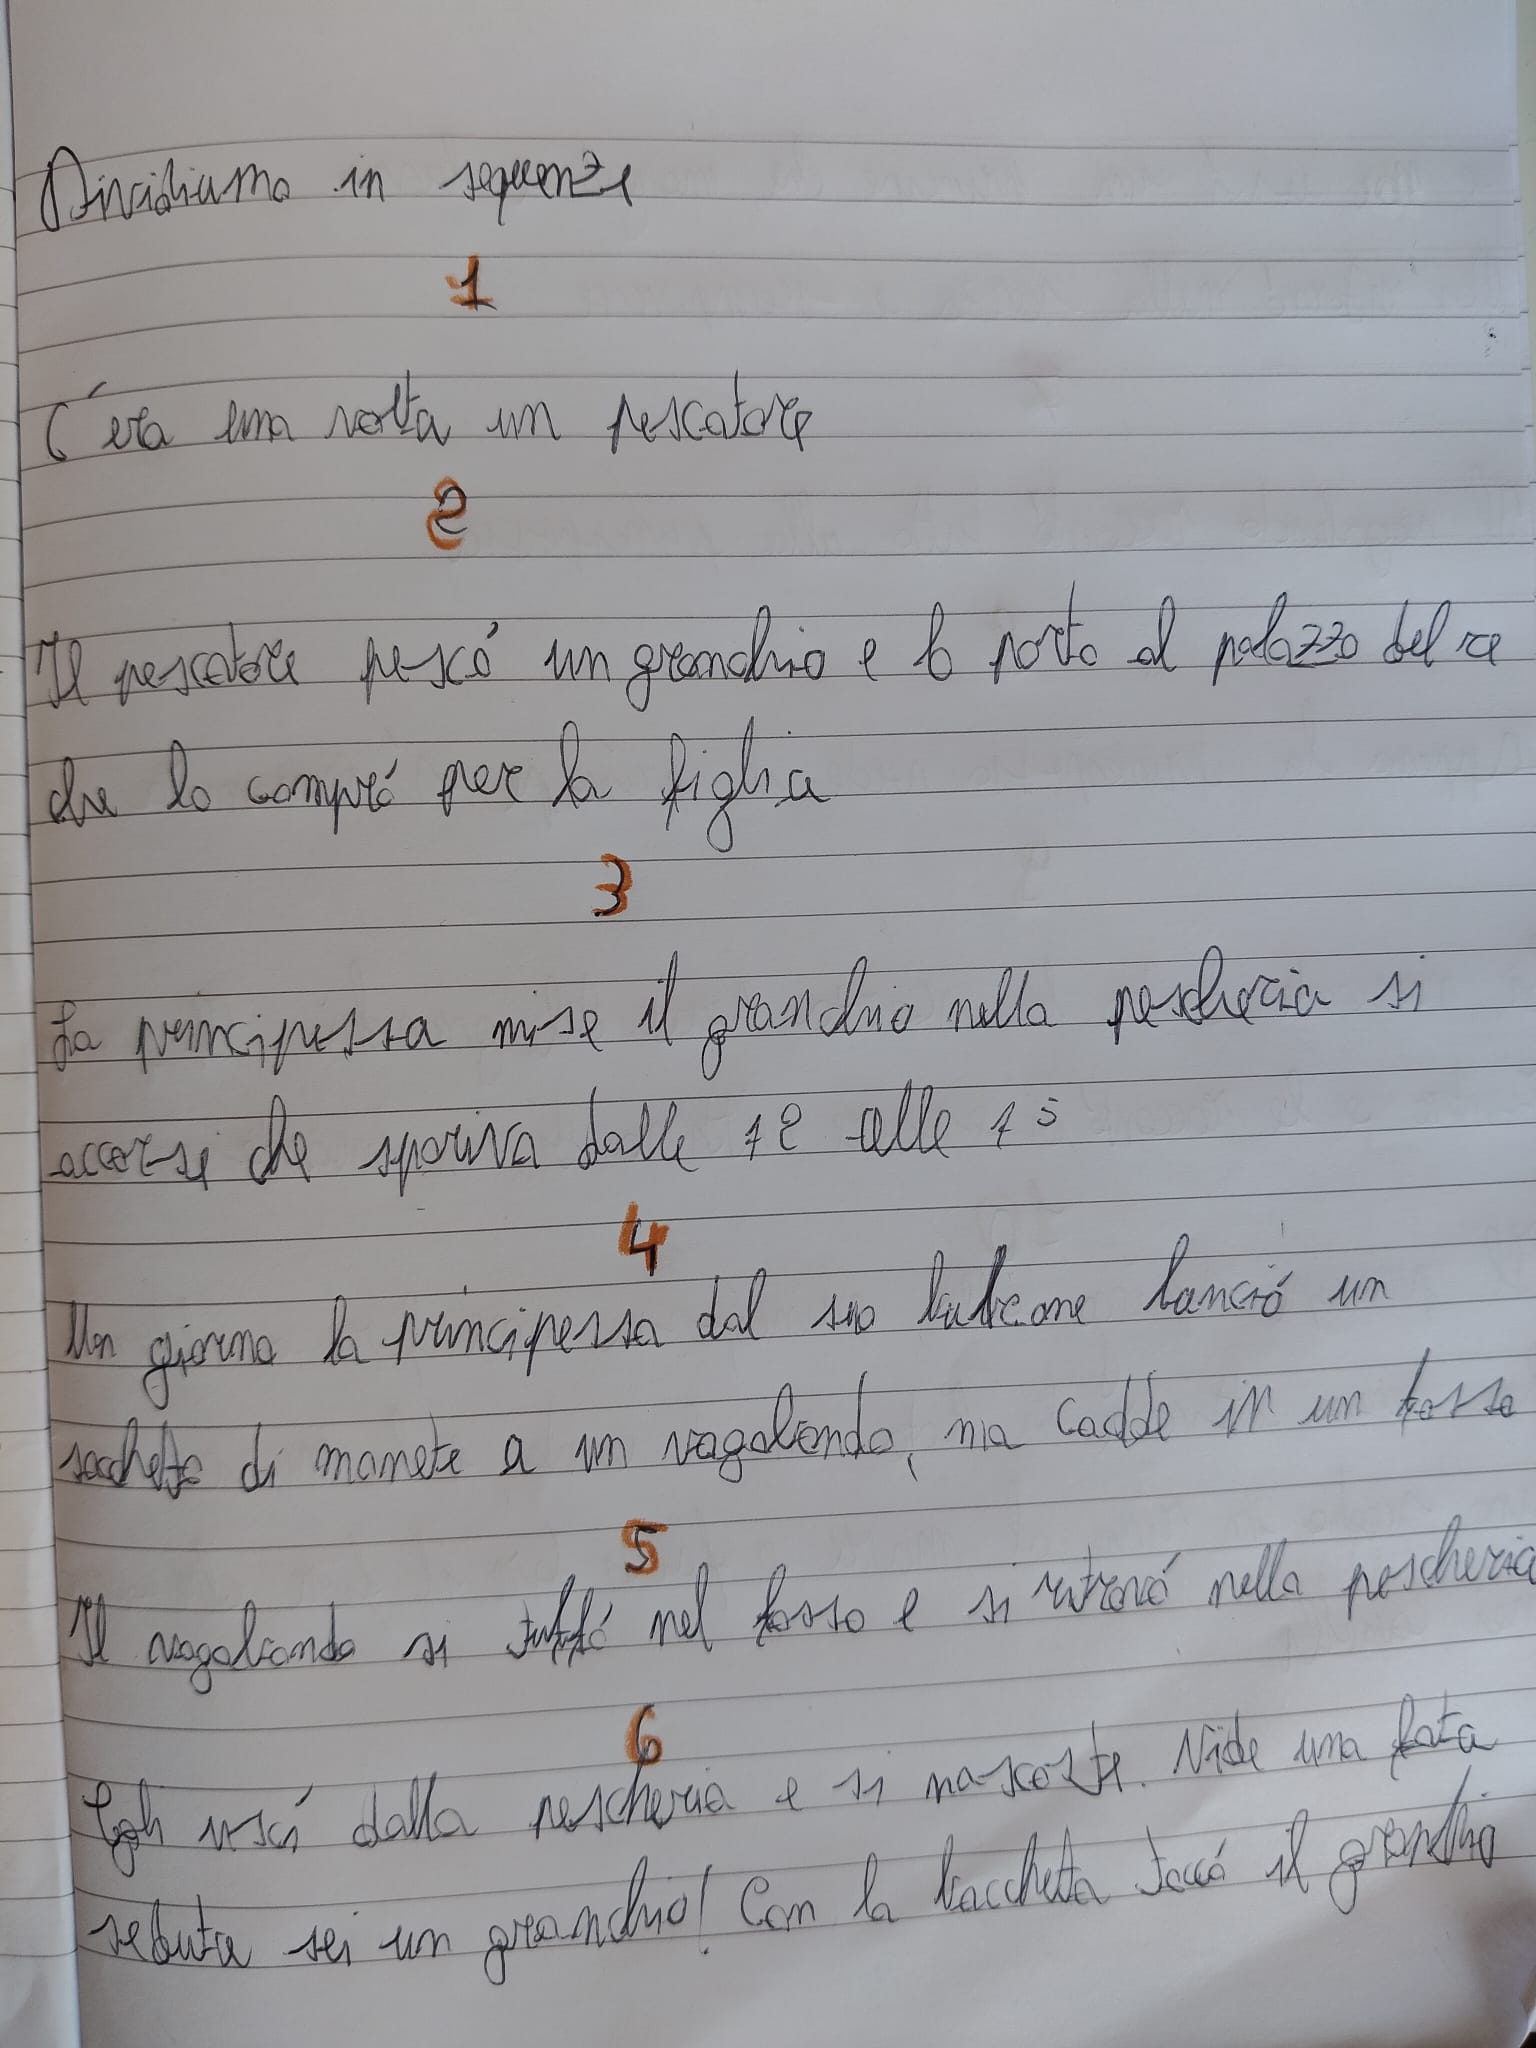 Dividiamo in sequenze
1
C'era una volta un pescatore
2
Il pescatore pescó un granchio e lo porto al palazzo del re
che lo compró per la figlia
3
La principessa mise il granchio nella pescheria si
accorse che spariva dalle 12 alle 15
4
Un giorno la principessa dal suo balcone lanció un
sacchetto di monete a un vagabondo, ma cadde in un fosso
5
Il vagabondo si tuffó nel fosso e si ritrovó nella pescheria
6
Egli uscí dalla pescheria e si nascoste. Vide una fata
seduta sei un granchio! Con la bacchetta toccó il granchio